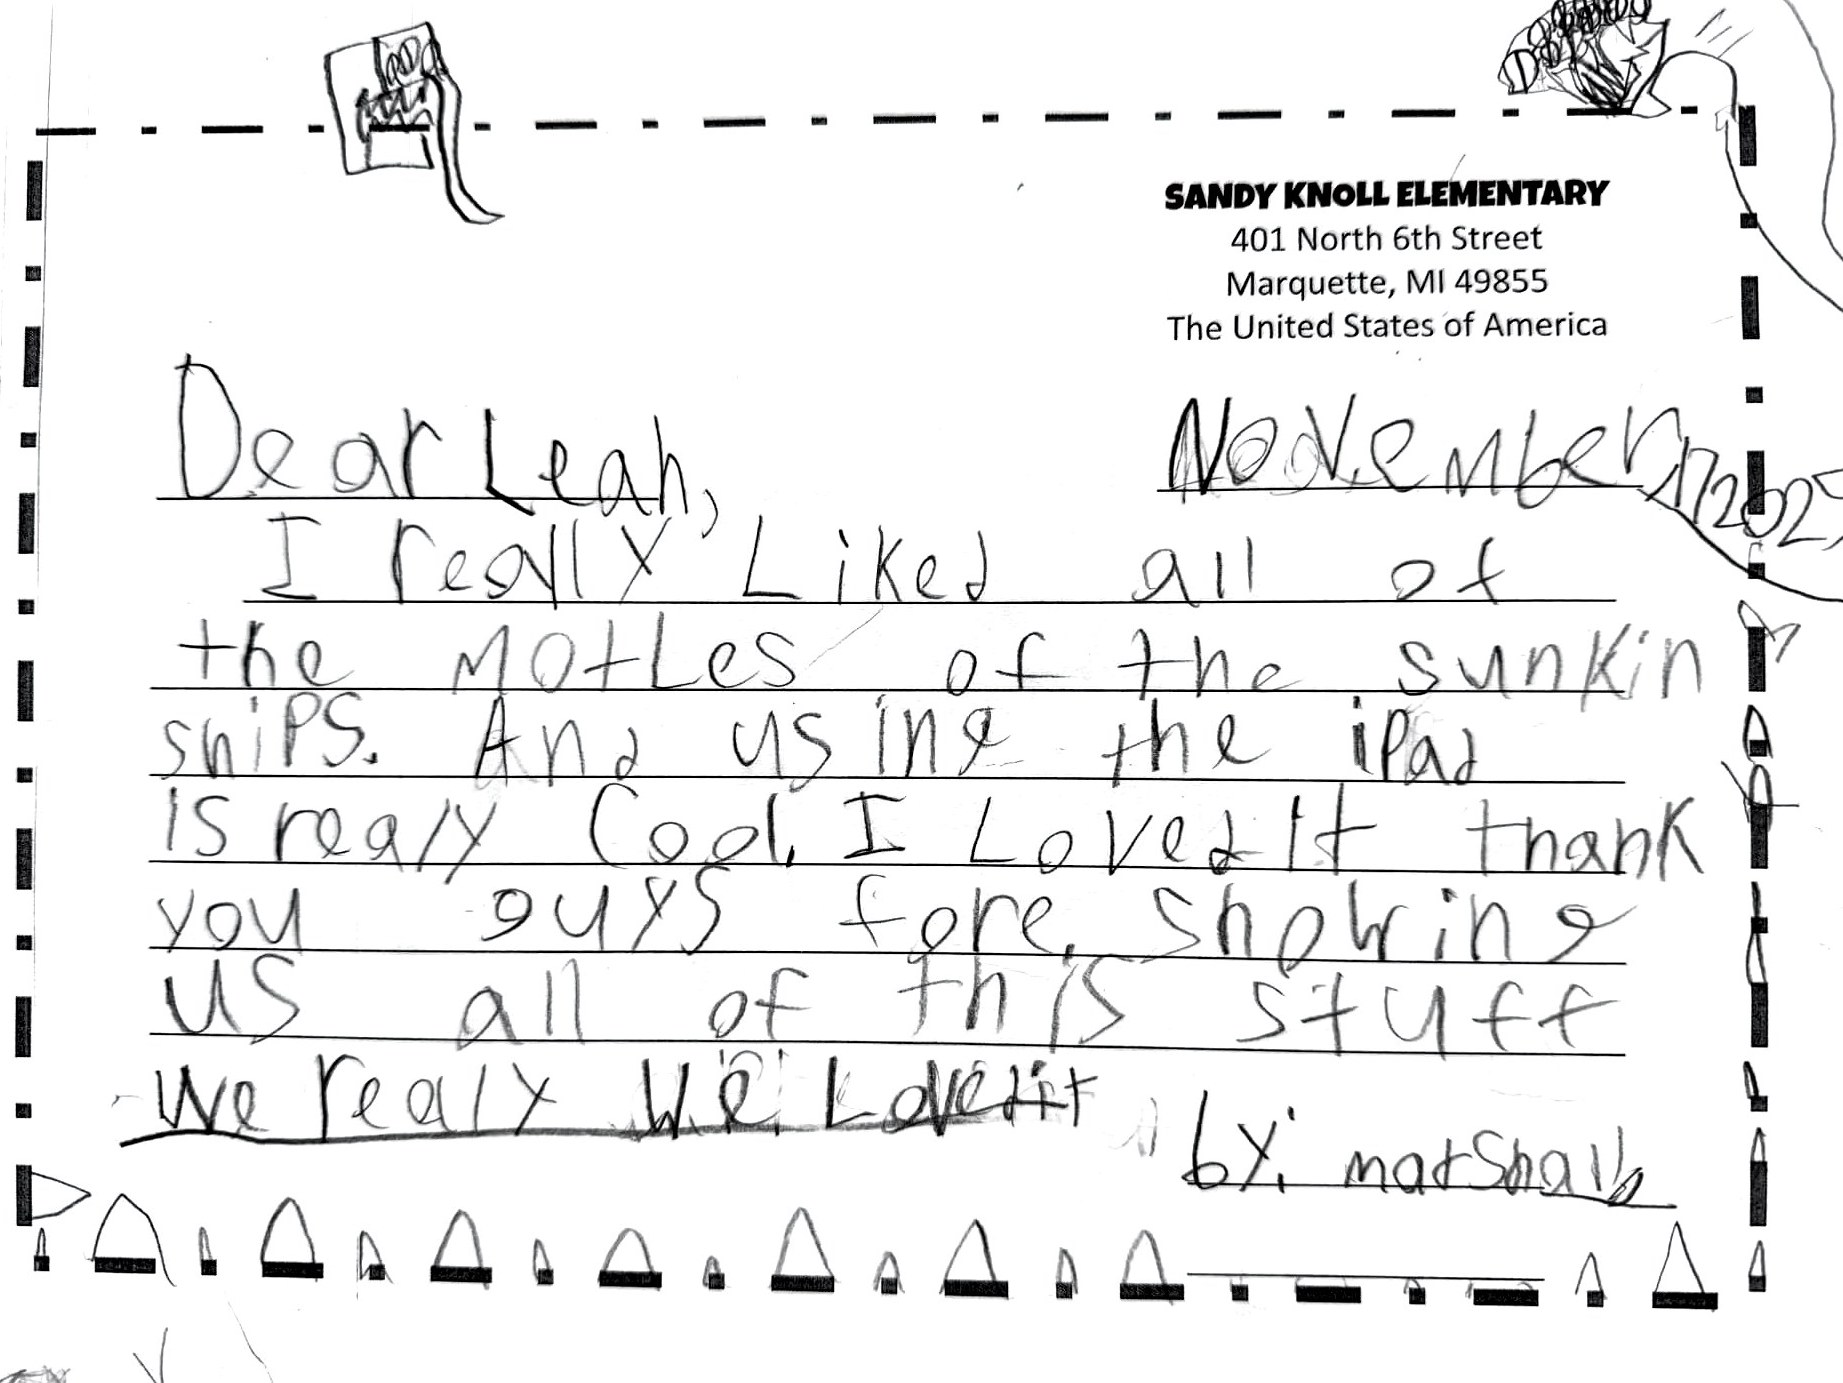 SANDY KNOLL ELEMENTARY
401 North 6th Street
Marquette, MI 49855
The United States of America
November, 17 2025,
Dear Leah,
I really Liked all of
the MotLes of the sunkin
shiPS. And using the ipad
is realy Cool. I Loved It thank
you guys fore showing
us all of this stuff
we realy We Loved it
by: marshall